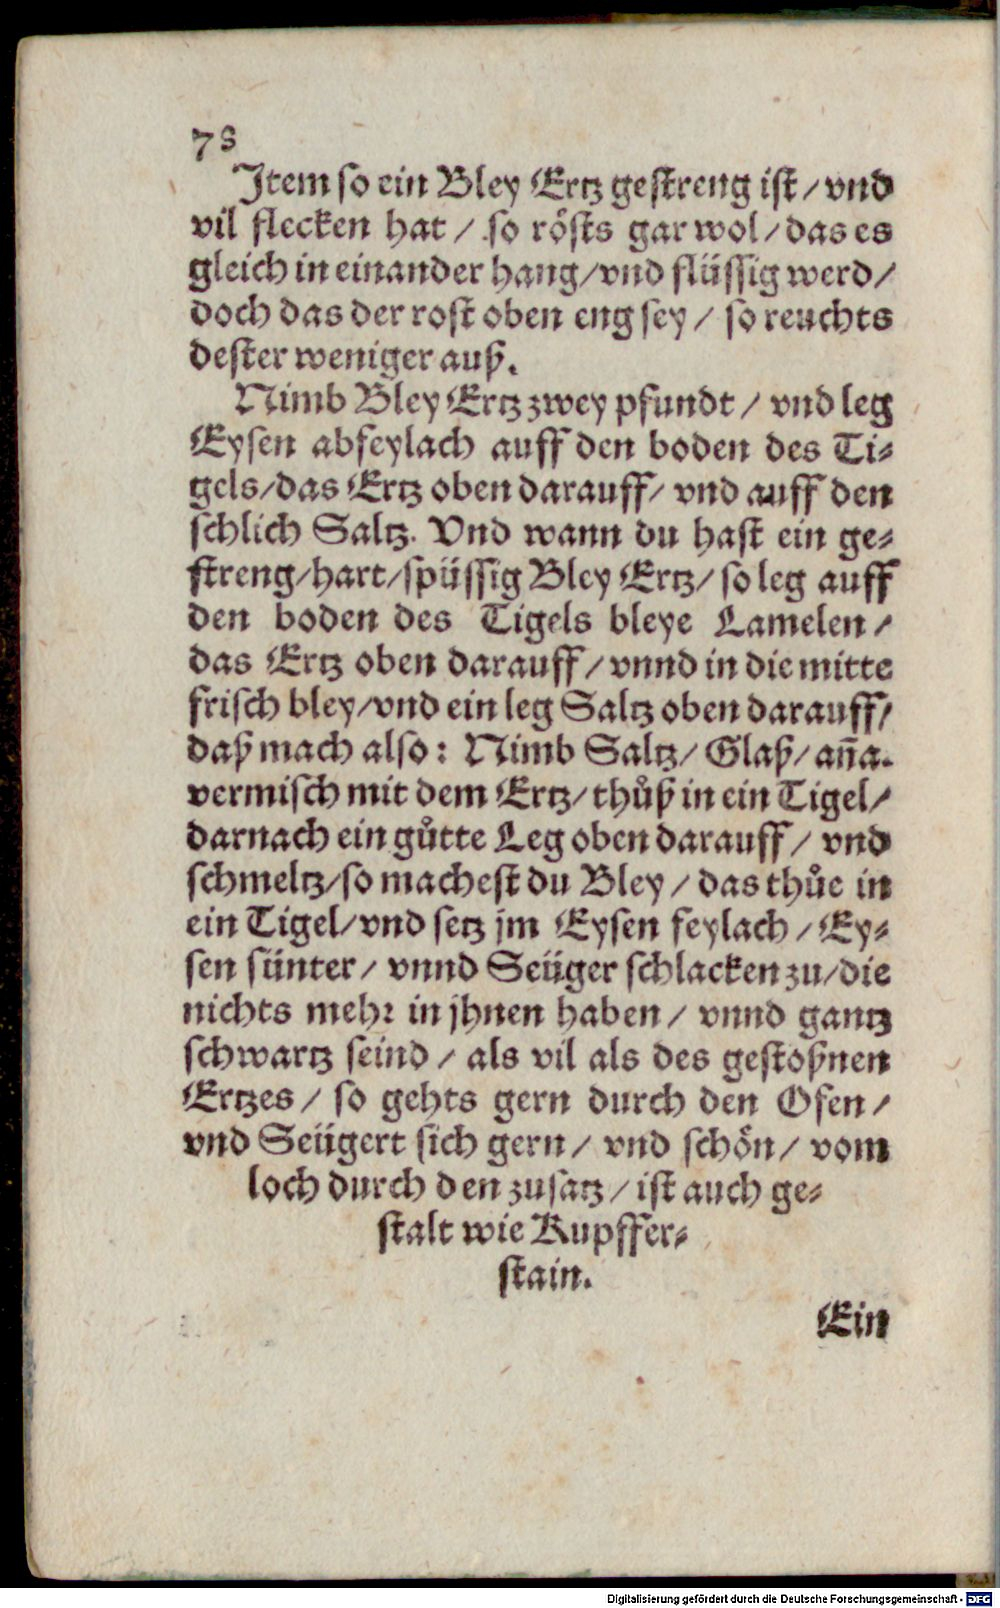 78
Jtem so ein Bley Ertz gestreng ist / vnd
vil flecken hat / so rösts gar wol / das es
gleich in einander hang / vnd flüssig werd /
doch das der rost oben eng sey / so reuchts
dester weniger auß.
Nimb Bley Ertz zwey pfundt / vnd leg
Eysen abfeylach auff den boden des Ti-
gels / das Ertz oben darauff / vnd auff den
schlich Saltz. Vnd wann du hast ein ge-
streng / hart / spüssig Bley Ertz / so leg auff
den boden des Tigels bleye Lamelen /
das Ertz oben darauff / vnnd in die mitte
frisch bley / vnd ein leg Saltz oben darauff /
daß mach also : Nimb Saltz / Glaß / an̄a.
vermisch mit dem Ertz / thůß in ein Tigel /
darnach ein gůtte Leg oben darauff / vnd
schmeltz / so machest du Bley / das thůe in
ein Tigel / vnd setz jm Eysen feylach / Ey-
sen sünter / vnnd Seüger schlacken zu / die
nichts mehr in jhnen haben / vnnd gantz
schwartz seind / als vil als des gestoßnen
Ertzes / so gehts gern durch den Ofen /
vnd Seügert sich gern / vnd schön / vom
loch durch den zusatz / ist auch ge-
stalt wie Kupffer-
stain.
Ein
Digitalisierung gefördert durch die Deutsche Forschungsgemeinschaft - DFG